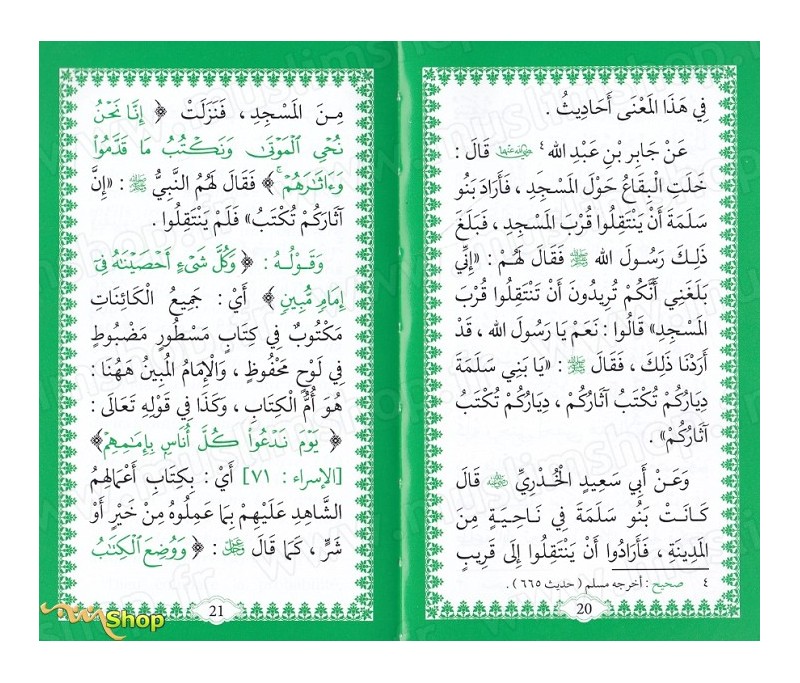 فِي هَذَا المَعْنَى أَحَادِيثُ .
عَنْ جَابِر بْنِ عَبْدِ الله ٤ رضي الله عنهما قَالَ :
خَلَتِ الْبِقَاعُ حَوْلَ المَسْجِدِ ، فَأَرَادَ بَنُو
سَلَمَةَ أَنْ يَنْتَقِلُوا قُرْبَ المَسْجِدِ ، فَبَلَغَ
ذَلِكَ رَسُولَ الله ﷺ فَقَالَ لَهُمْ : «إِنِّي
بَلَغَنِي أَنَّكُمْ تُرِيدُونَ أَنْ تَنْتَقِلُوا قُرْبَ
المَسْجِدِ» قَالُوا : نَعَمْ يَا رَسُولَ الله ، قَدْ
أَرَدْنَا ذَلِكَ ، فَقَالَ ﷺ : «يَا بَنِي سَلَمَةَ
دِيَارُكُمْ تُكْتَبُ آثَارُكُمْ ، دِيَارُكُمْ تُكْتَبُ
آثَارُكُمْ» .
وَعَنْ أَبِي سَعِيدٍ الْخُدْرِيِّ رضي الله عنه قَالَ
كَانَتْ بَنُو سَلَمَةَ فِي نَاحِيَةٍ مِنَ
المَدِينَةِ ، فَأَرَادُوا أَنْ يَنْتَقِلُوا إِلَى قَرِيبٍ
٤ صحيح : أخرجه مسلم ( حديث ٦٦٥ ) .
20
مِنَ المَسْجِدِ ، فَنَزَلَتْ ﴿ إِنَّا نَحْنُ
نُحْيِ الْمَوْتَىٰ وَنَكْتُبُ مَا قَدَّمُوا
وَءَاثَارَهُمْ ۚ ﴾ فَقَالَ لَهُمُ النَّبِيُّ ﷺ : «إِنَّ
آثَارَكُمْ تُكْتَبُ» فَلَمْ يَنْتَقِلُوا .
وَقَوْلُهُ : ﴿ وَكُلَّ شَىْءٍ أَحْصَيْنَاهُ فِى
إِمَامٍ مُّبِينٍ ﴾ أَيْ : جَمِيعُ الْكَائِنَاتِ
مَكْتُوبٌ فِي كِتَابٍ مَسْطُورٍ مَضْبُوطٍ
فِي لَوْحٍ مَحْفُوظٍ ، وَالْإِمَامُ المُبِينُ هَهُنَا :
هُوَ أُمُّ الْكِتَابِ ، وَكَذَا فِي قَوْلِهِ تَعَالَى :
﴿ يَوْمَ نَدْعُوا كُلَّ أُنَاسٍ بِإِمَامِهِمْ ﴾
[الإسراء : ٧١] أَيْ : بِكِتَابِ أَعْمَالِهِمُ
الشَّاهِدِ عَلَيْهِمْ بِمَا عَمِلُوهُ مِنْ خَيْرٍ أَوْ
شَرٍّ ، كَمَا قَالَ ﷻ : ﴿ وَوُضِعَ الْكِتَابُ
21
Shop